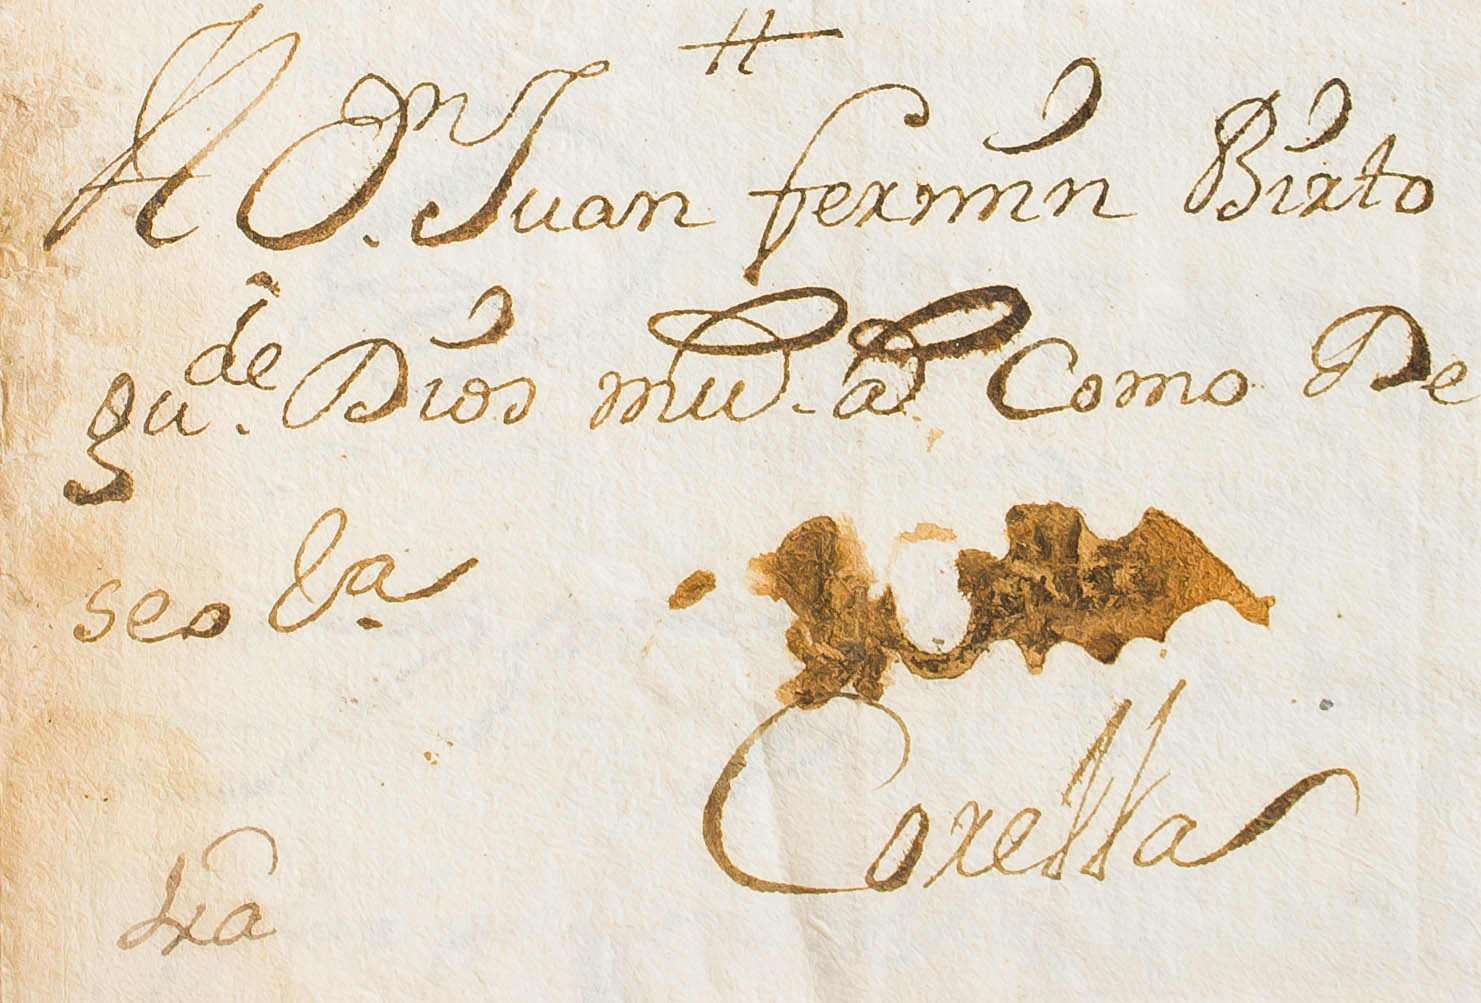 A D.n Juan fermin Birto
gu.de Dios mu. a.s Como De
seo &a.
Corella